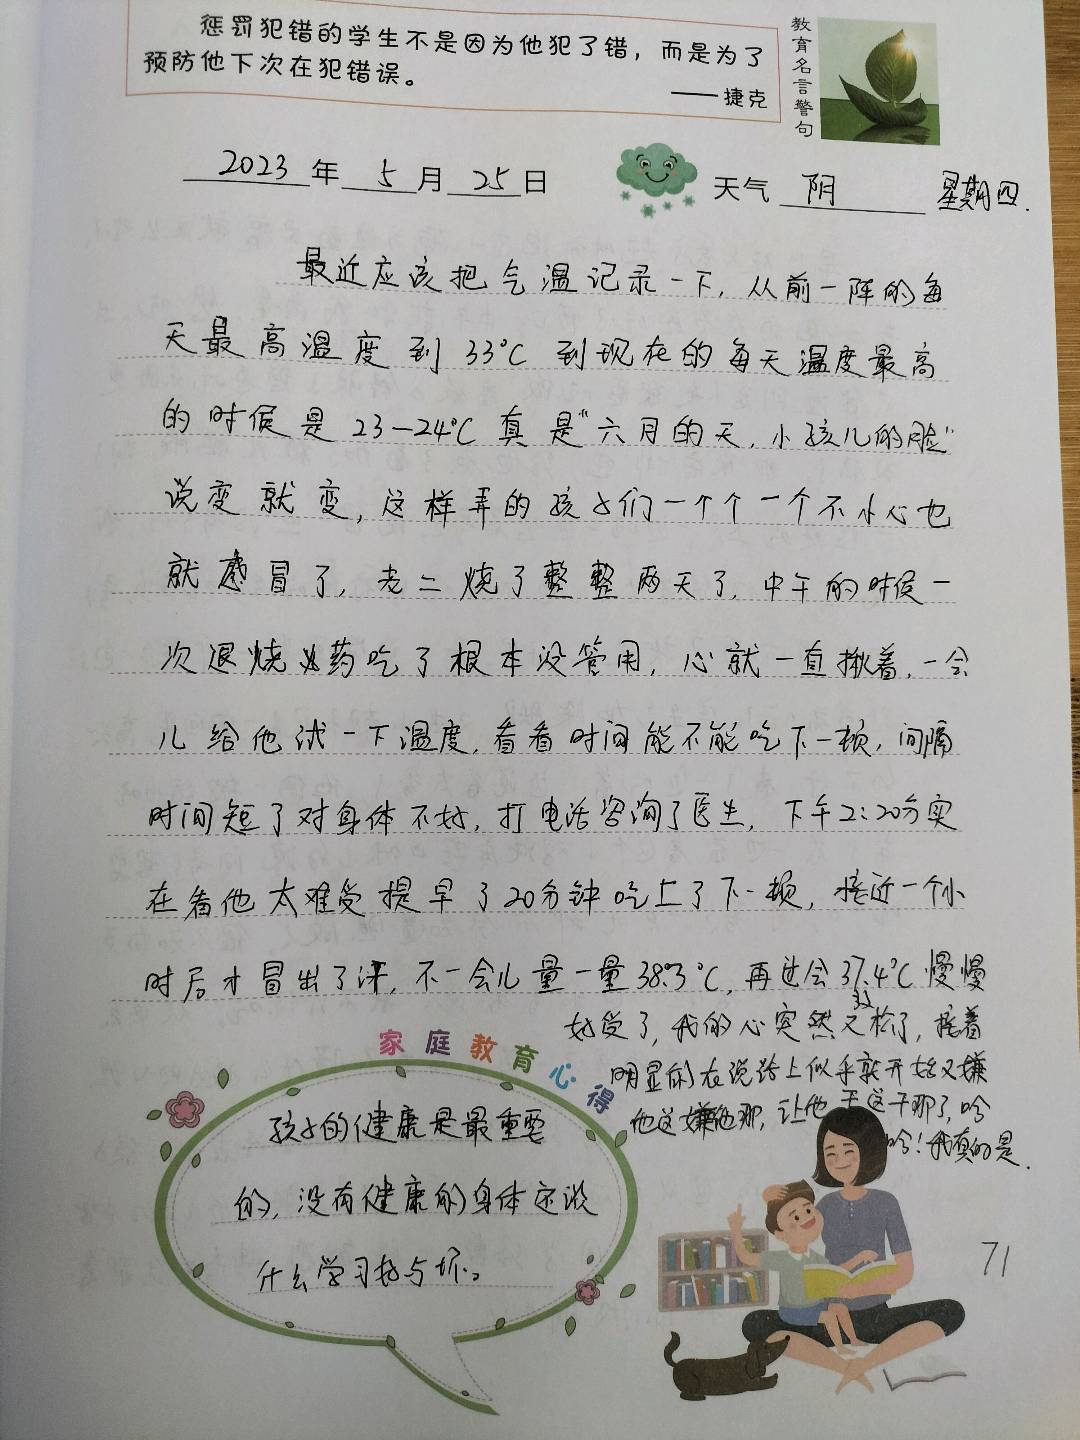 惩罚犯错的学生不是因为他犯了错，而是为了
预防他下次在犯错误。
——捷克
教育名言警句
2023年5月25日
天气 阴 星期四.
最近应该把气温记录一下，从前一阵的每
天最高温度到33°C到现在的每天温度最高
的时候是23—24°C真是“六月的天，小孩儿的脸”
说变就变，这样弄的孩子们一个个一个不小心也
就感冒了，老二烧了整整两天了，中午的时候一
次退烧药吃了根本没管用，心就一直揪着，一会
儿给他试一下温度，看看时间能不能吃下一顿，间隔
时间短了对身体不好，打电话咨询了医生，下午2:20分实
在看他太难受提早了20分钟吃上了下一顿，接近一个小
时后才冒出了汗，不一会儿量一量38.3°C，再过会37.4°C慢慢
好受了，我的心突然又松了，接着
明显的在说话上似乎就开始又嫌
他这嫌他那，让他干这干那了，哈
哈！我真的是.
家庭教育心得
孩子的健康是最重要
的，没有健康的身体还谈
什么学习好与坏。
71